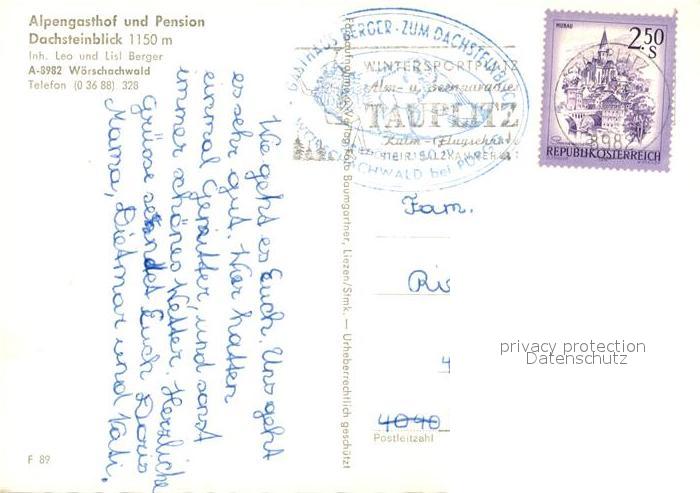 Alpengasthof und Pension
Dachsteinblick 1150 m
Inh. Leo und Lisl Berger
A-8982 Wörschachwald
Telefon (0 36 88) 328
Wie geht es Euch. Uns geht
es sehr gut. Wir hatten
einmal Gewitter, und sonst
immer schönes Wetter. Herzliche
Grüsse sendet Euch Doris
Mama, Dietmar und Kati.
F 89
Baumgartner, Liezen/Stmk. — Urheberrechtlich geschützt
GASTHAUS BERGER · ZUM DACHSTEINBLICK
WINTERSPORTPLATZ
Alm- u. Seenparadies
TAUPLITZ
Kulm-Flugschanze
2.50 S
MURAU
8982
REPUBLIK ÖSTERREICH
Fam.
Ri
4
4040
Postleitzahl
privacy protection
Datenschutz